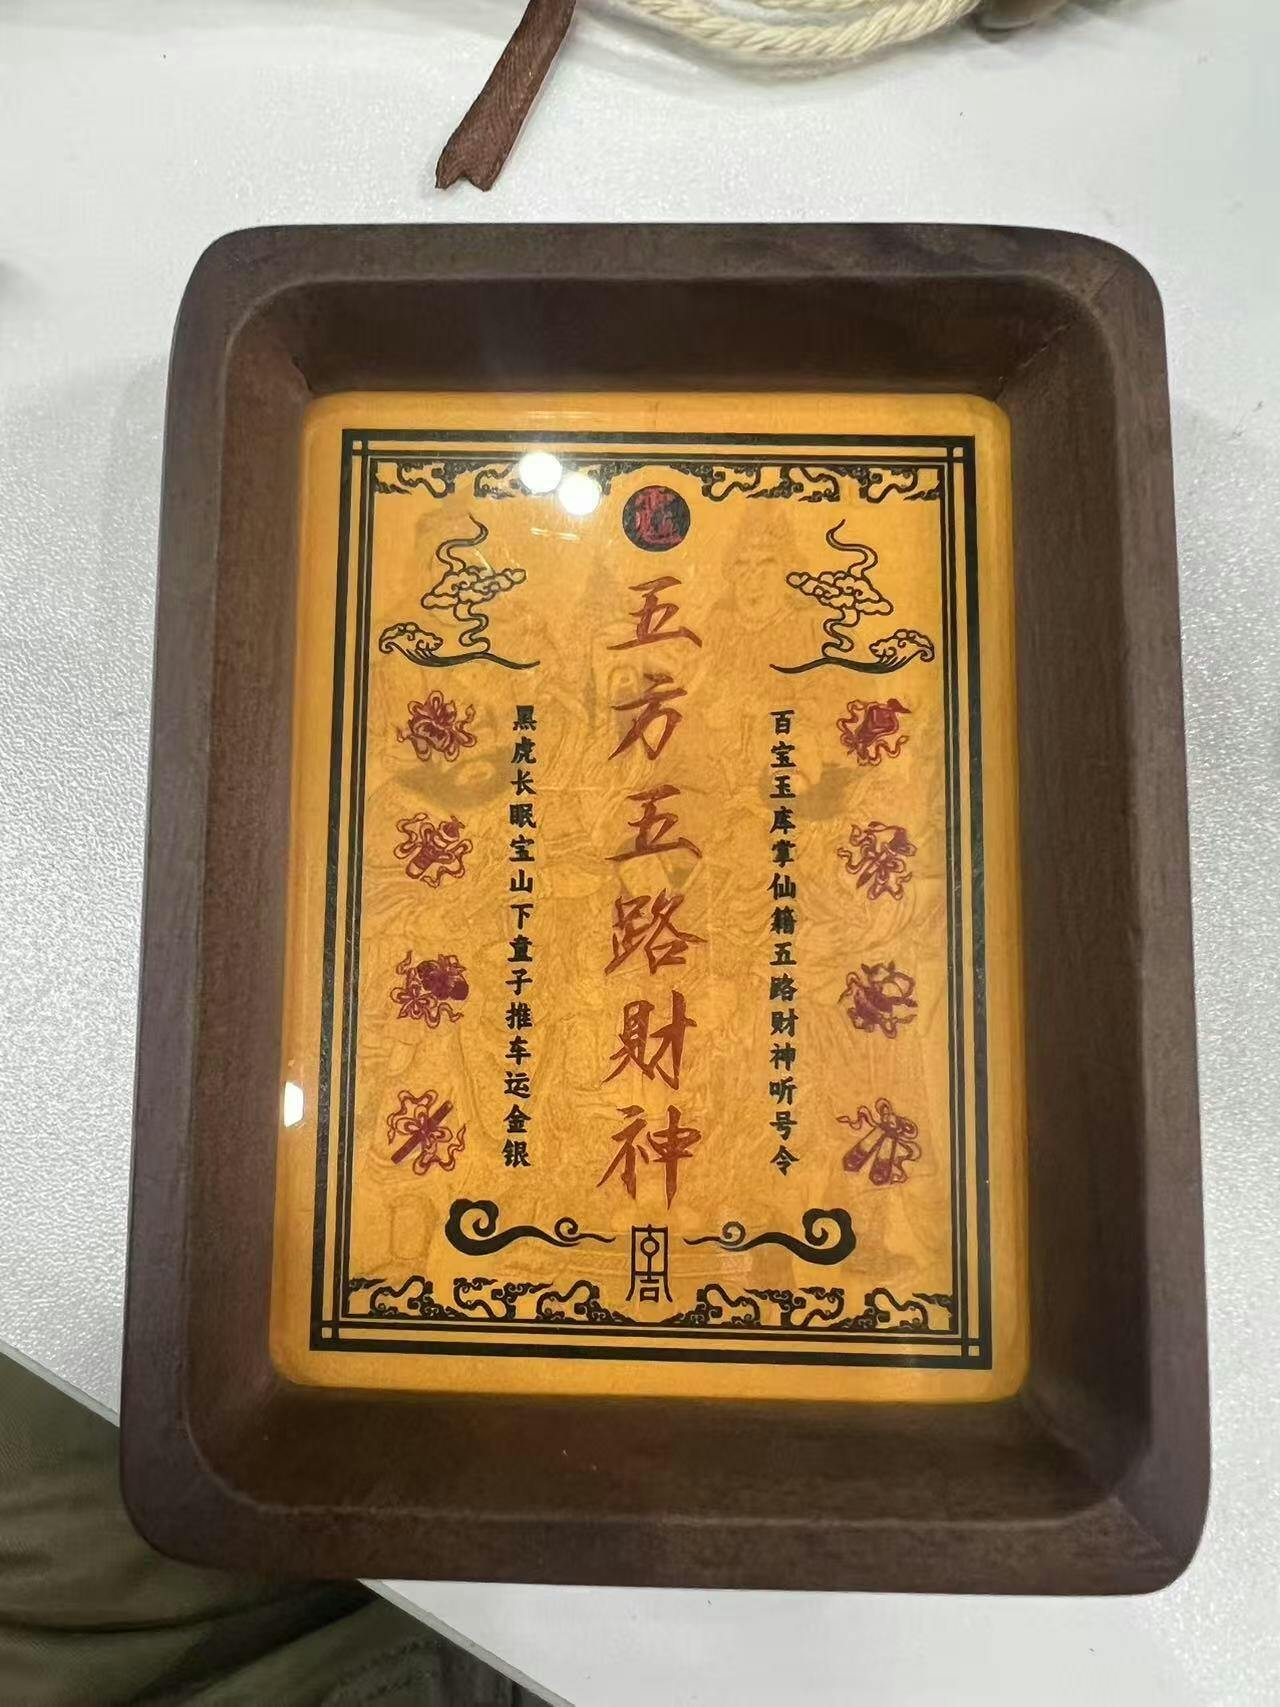 五方五路财神
百宝玉库掌仙籍五路财神听号令
黑虎长眠宝山下童子推车运金银